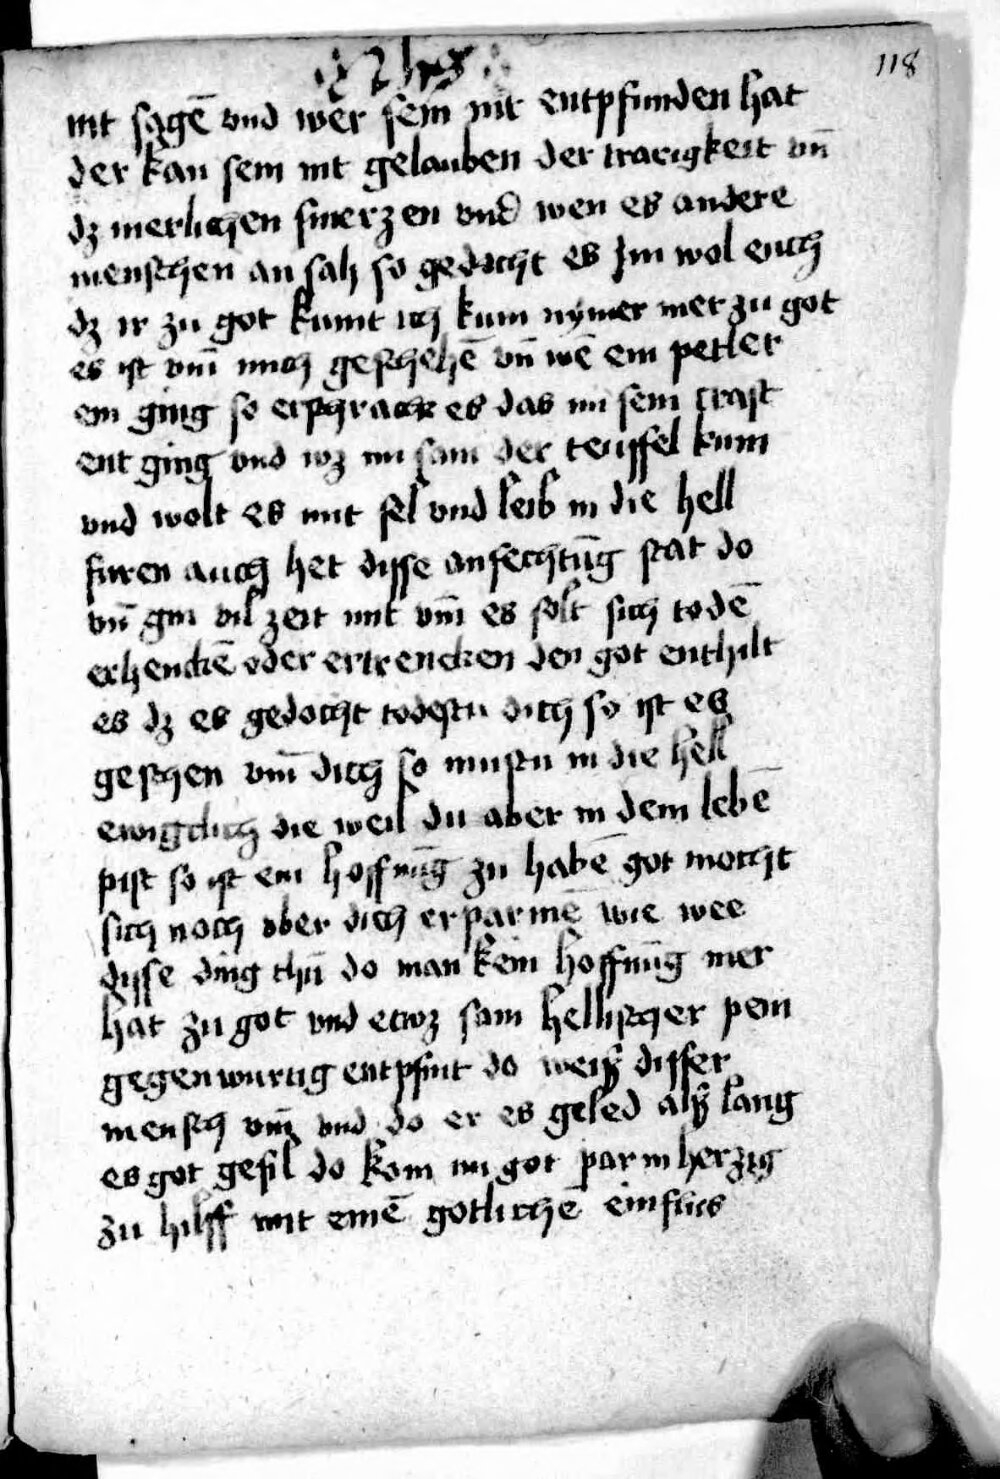 118
nit sagē vnd wer sein nit entpfunden hat
der kan sein nit gelauben der trarigkeit vn̄
dz merlichen smerzen vnd wen es andere
menschen an sah so gedocht es im wol euch
dz ir zu got kumt ich kum nymer mer zu got
es ist vm̄ mich geschehē vn̄ wē ein petler
ein ging so erschrack es das im sein craft
ent ging vnd wz im sam der teuffel kum
vnd wolt es mit sel vnd leib in die hell
furen auch het disse anfechtūg stat do
vn̄ gin vil zeit mit vm̄ es solt sich todē
erhenckē oder ertrencken den got enthilt
es dz es gedocht todestu dich so ist es
geschen vm̄ dich so mustu in die hell
ewigclich die weil du aber in dem lebē
pist so ist ein hoffnūg zu habē got mocht
sich noch vber dich erparmē wie wee
disse ding thū do man kein hoffnūg mer
hat zu got vnd etwz sam hellischer pein
gegenwurtig entpfint do weiß disser
mensch vm̄ vnd do er es geled alß lang
es got gefil do kom im got parmherzig
zu hilff mit einē gotlichē einflus